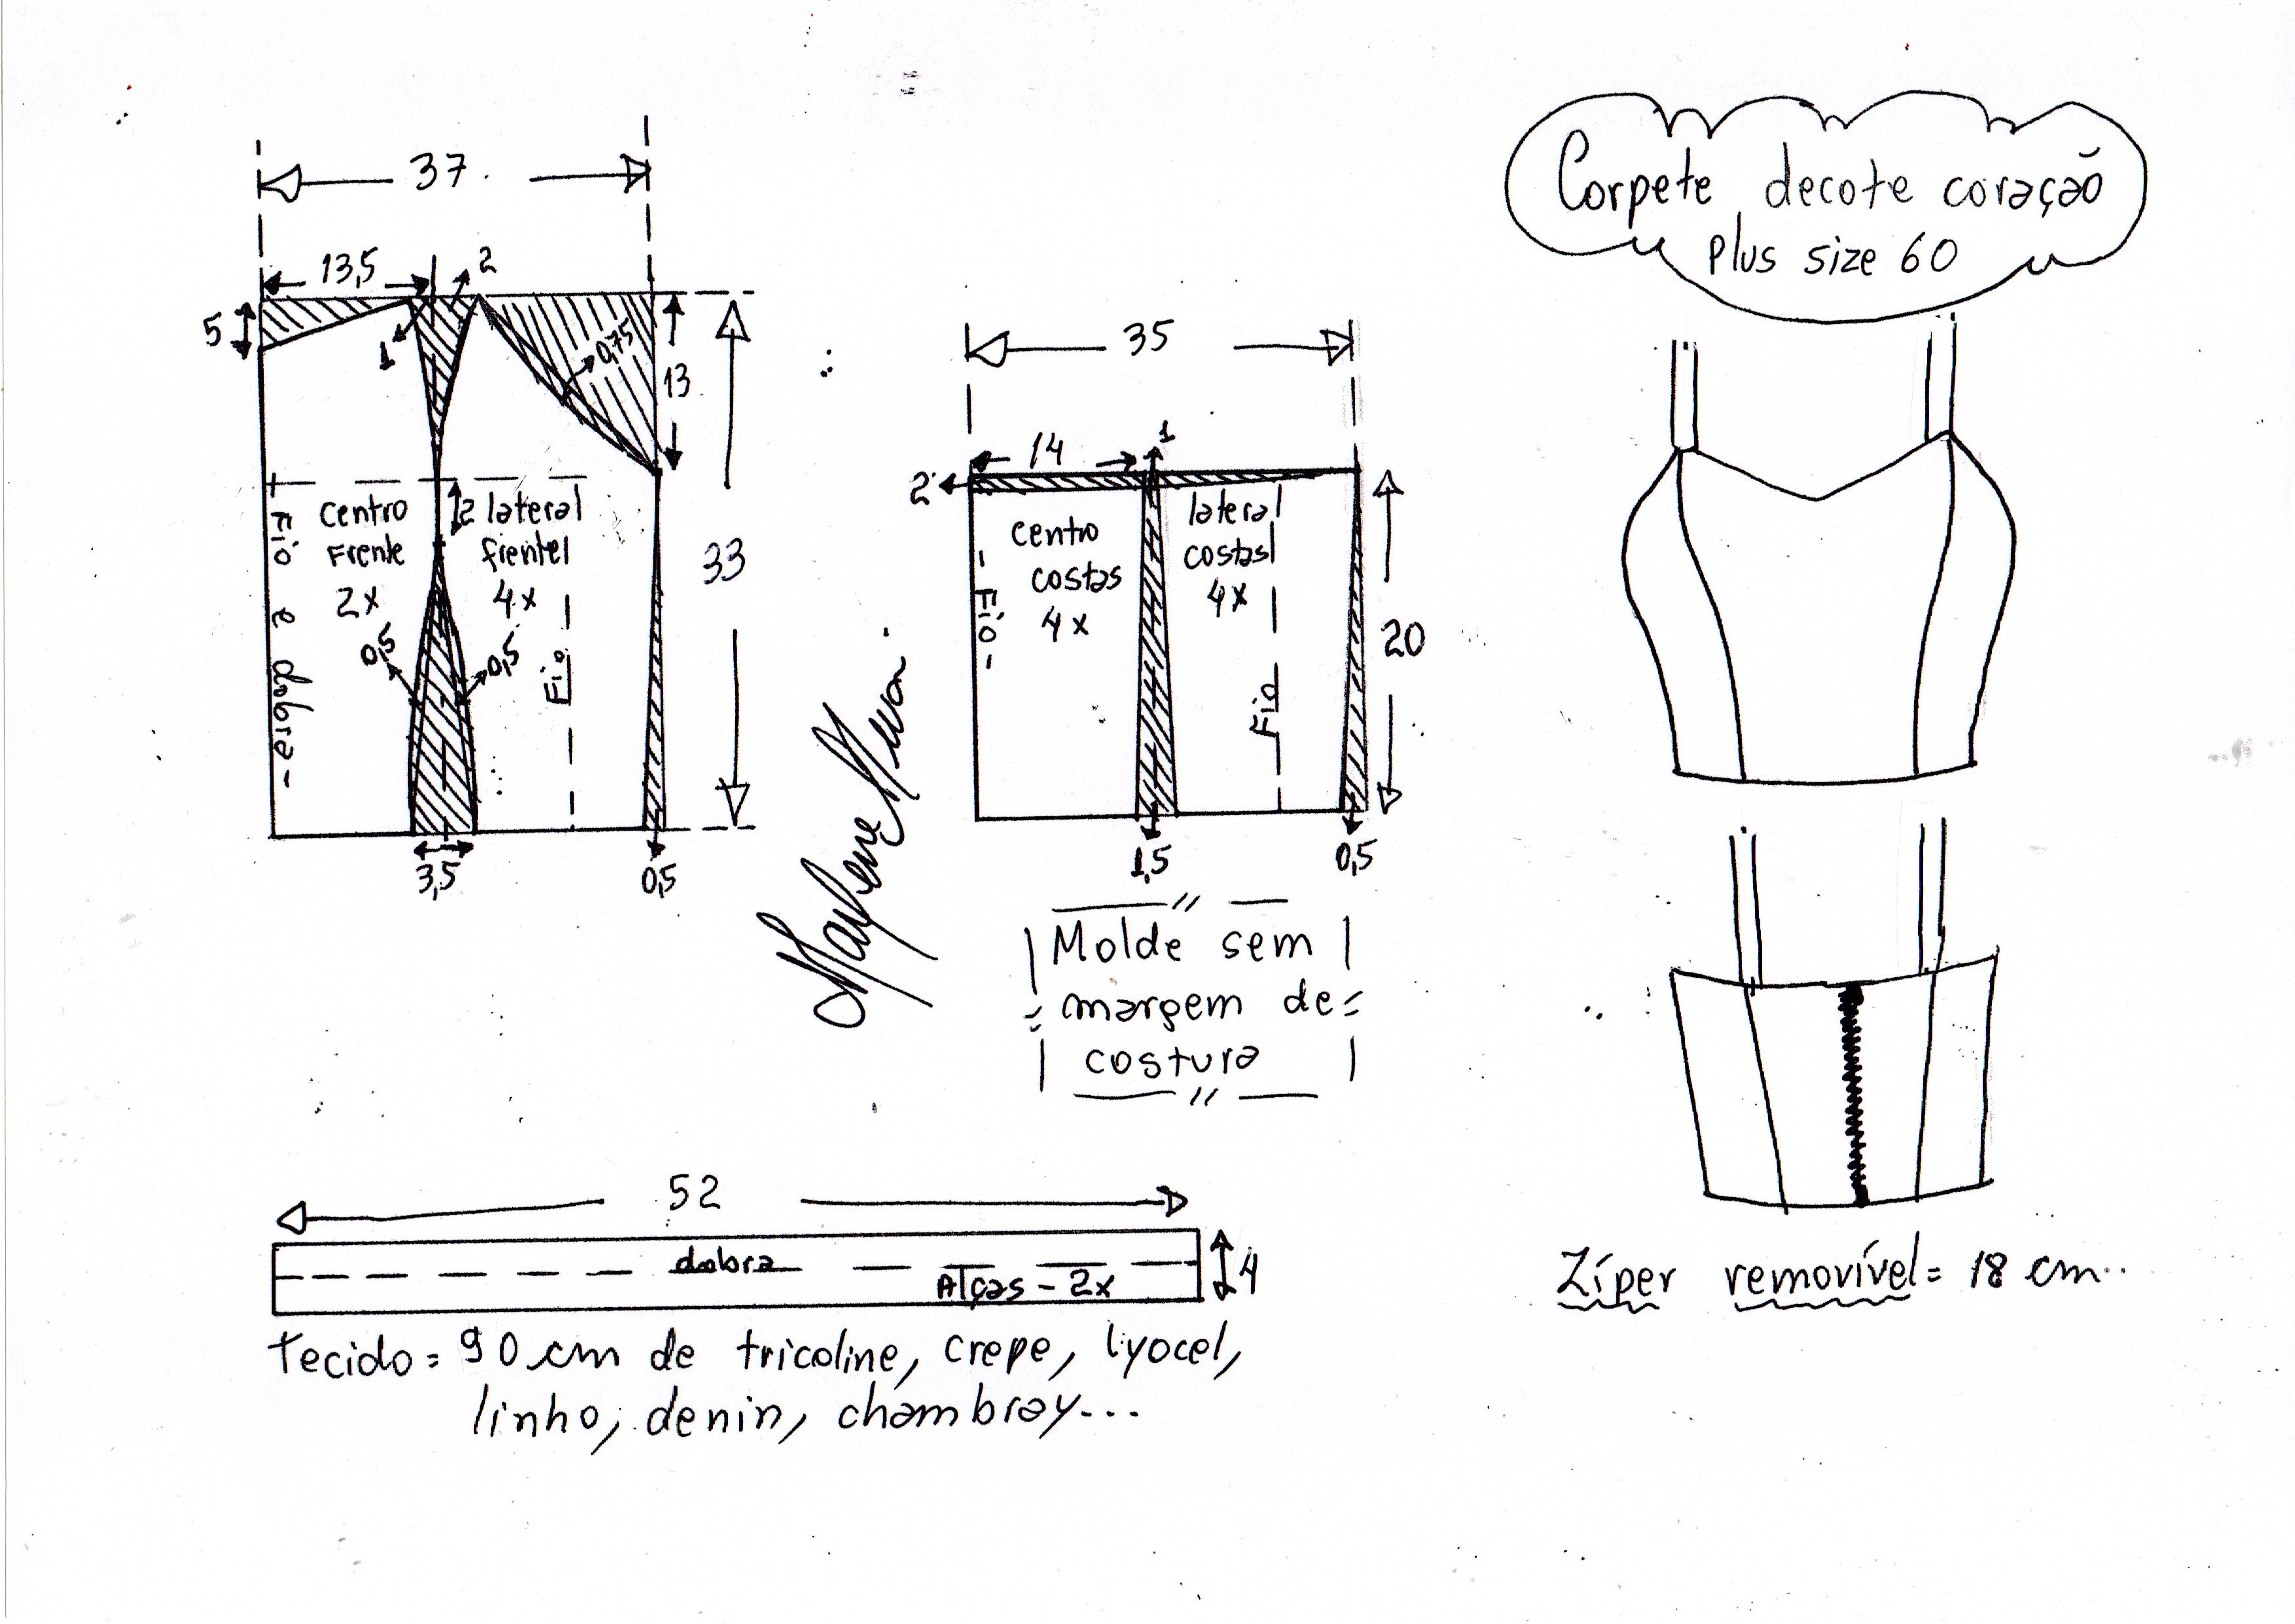 Corpete decote coração
plus size 60
37
13,5
2
5
1
0,75
13
33
centro
Frente
2x
2
lateral
frente
4x
Fio e dobra
0,5
0,5
Fio
3,5
0,5
35
14
1
2
centro
costas
4x
lateral
costas
4x
- Fio -
Fio
20
1,5
0,5
Molde sem
margem de
costura
52
dobra
Alças - 2x
4
Tecido = 90 cm de tricoline, crepe, lyocel,
linho, denin, chambray...
Zíper removível = 18 cm..